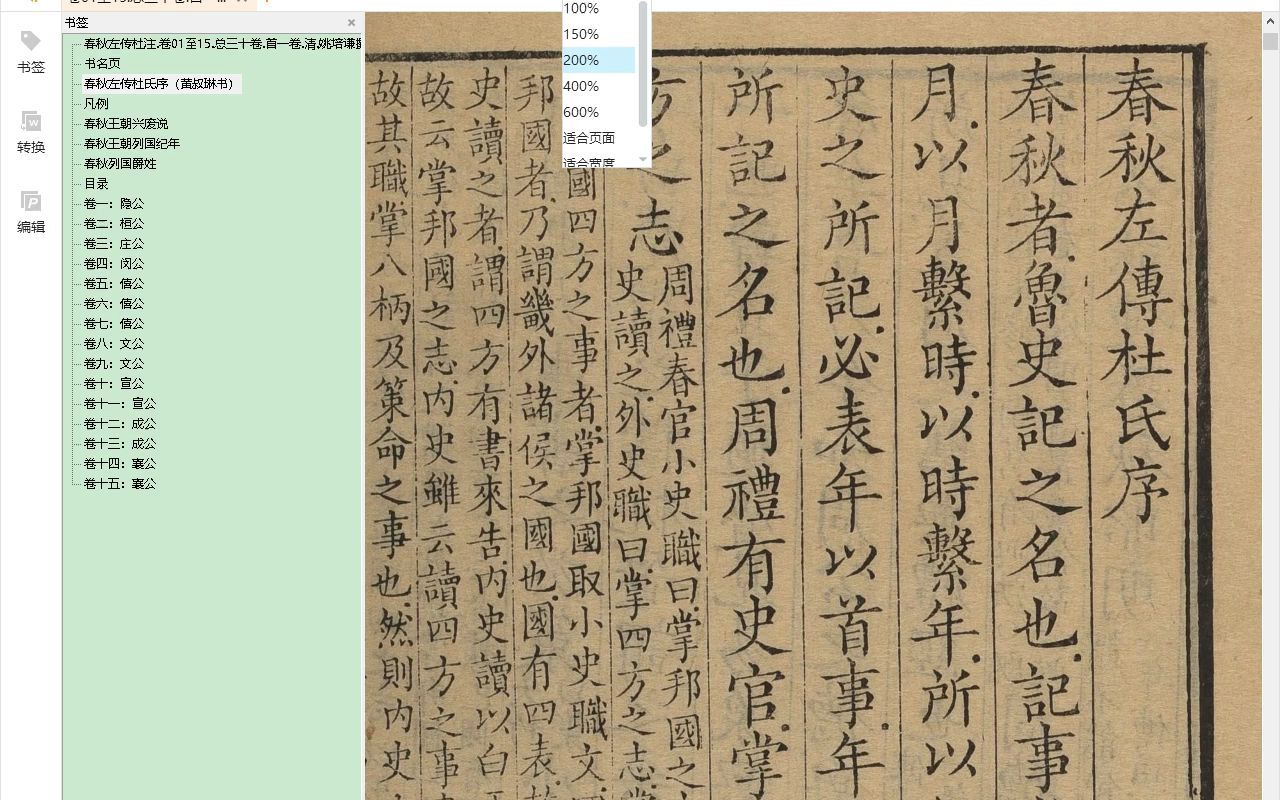 书签
转换
编辑
书签
春秋左传杜注.卷01至15.总三十卷.首一卷.清.姚培谦
书名页
春秋左传杜氏序（黄叔琳书）
凡例
春秋王朝兴废说
春秋王朝列国纪年
春秋列国爵姓
目录
卷一：隐公
卷二：桓公
卷三：庄公
卷四：闵公
卷五：僖公
卷六：僖公
卷七：僖公
卷八：文公
卷九：文公
卷十：宣公
卷十一：宣公
卷十二：成公
卷十三：成公
卷十四：襄公
卷十五：襄公
100%
150%
200%
400%
600%
适合页面
适合宽度
春秋左傳杜氏序
春秋者魯史記之名也記事
月以月繫時以時繫年所以
史之所記必表年以首事年
所記之名也周禮有史官掌
方之志
周禮春官小史職曰掌邦國之
史讀之外史職曰掌四方之志
國四方之事者掌邦國取小史職文
邦國者乃謂畿外諸侯之國也國有四表
史讀之者謂四方有書來告内史讀以白
故云掌邦國之志内史雖云讀四方之事
故其職掌八柄及策命之事也然則内史